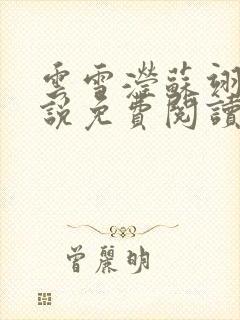 雲雪瀅蘇翊
說免費閱讀
曾麗明